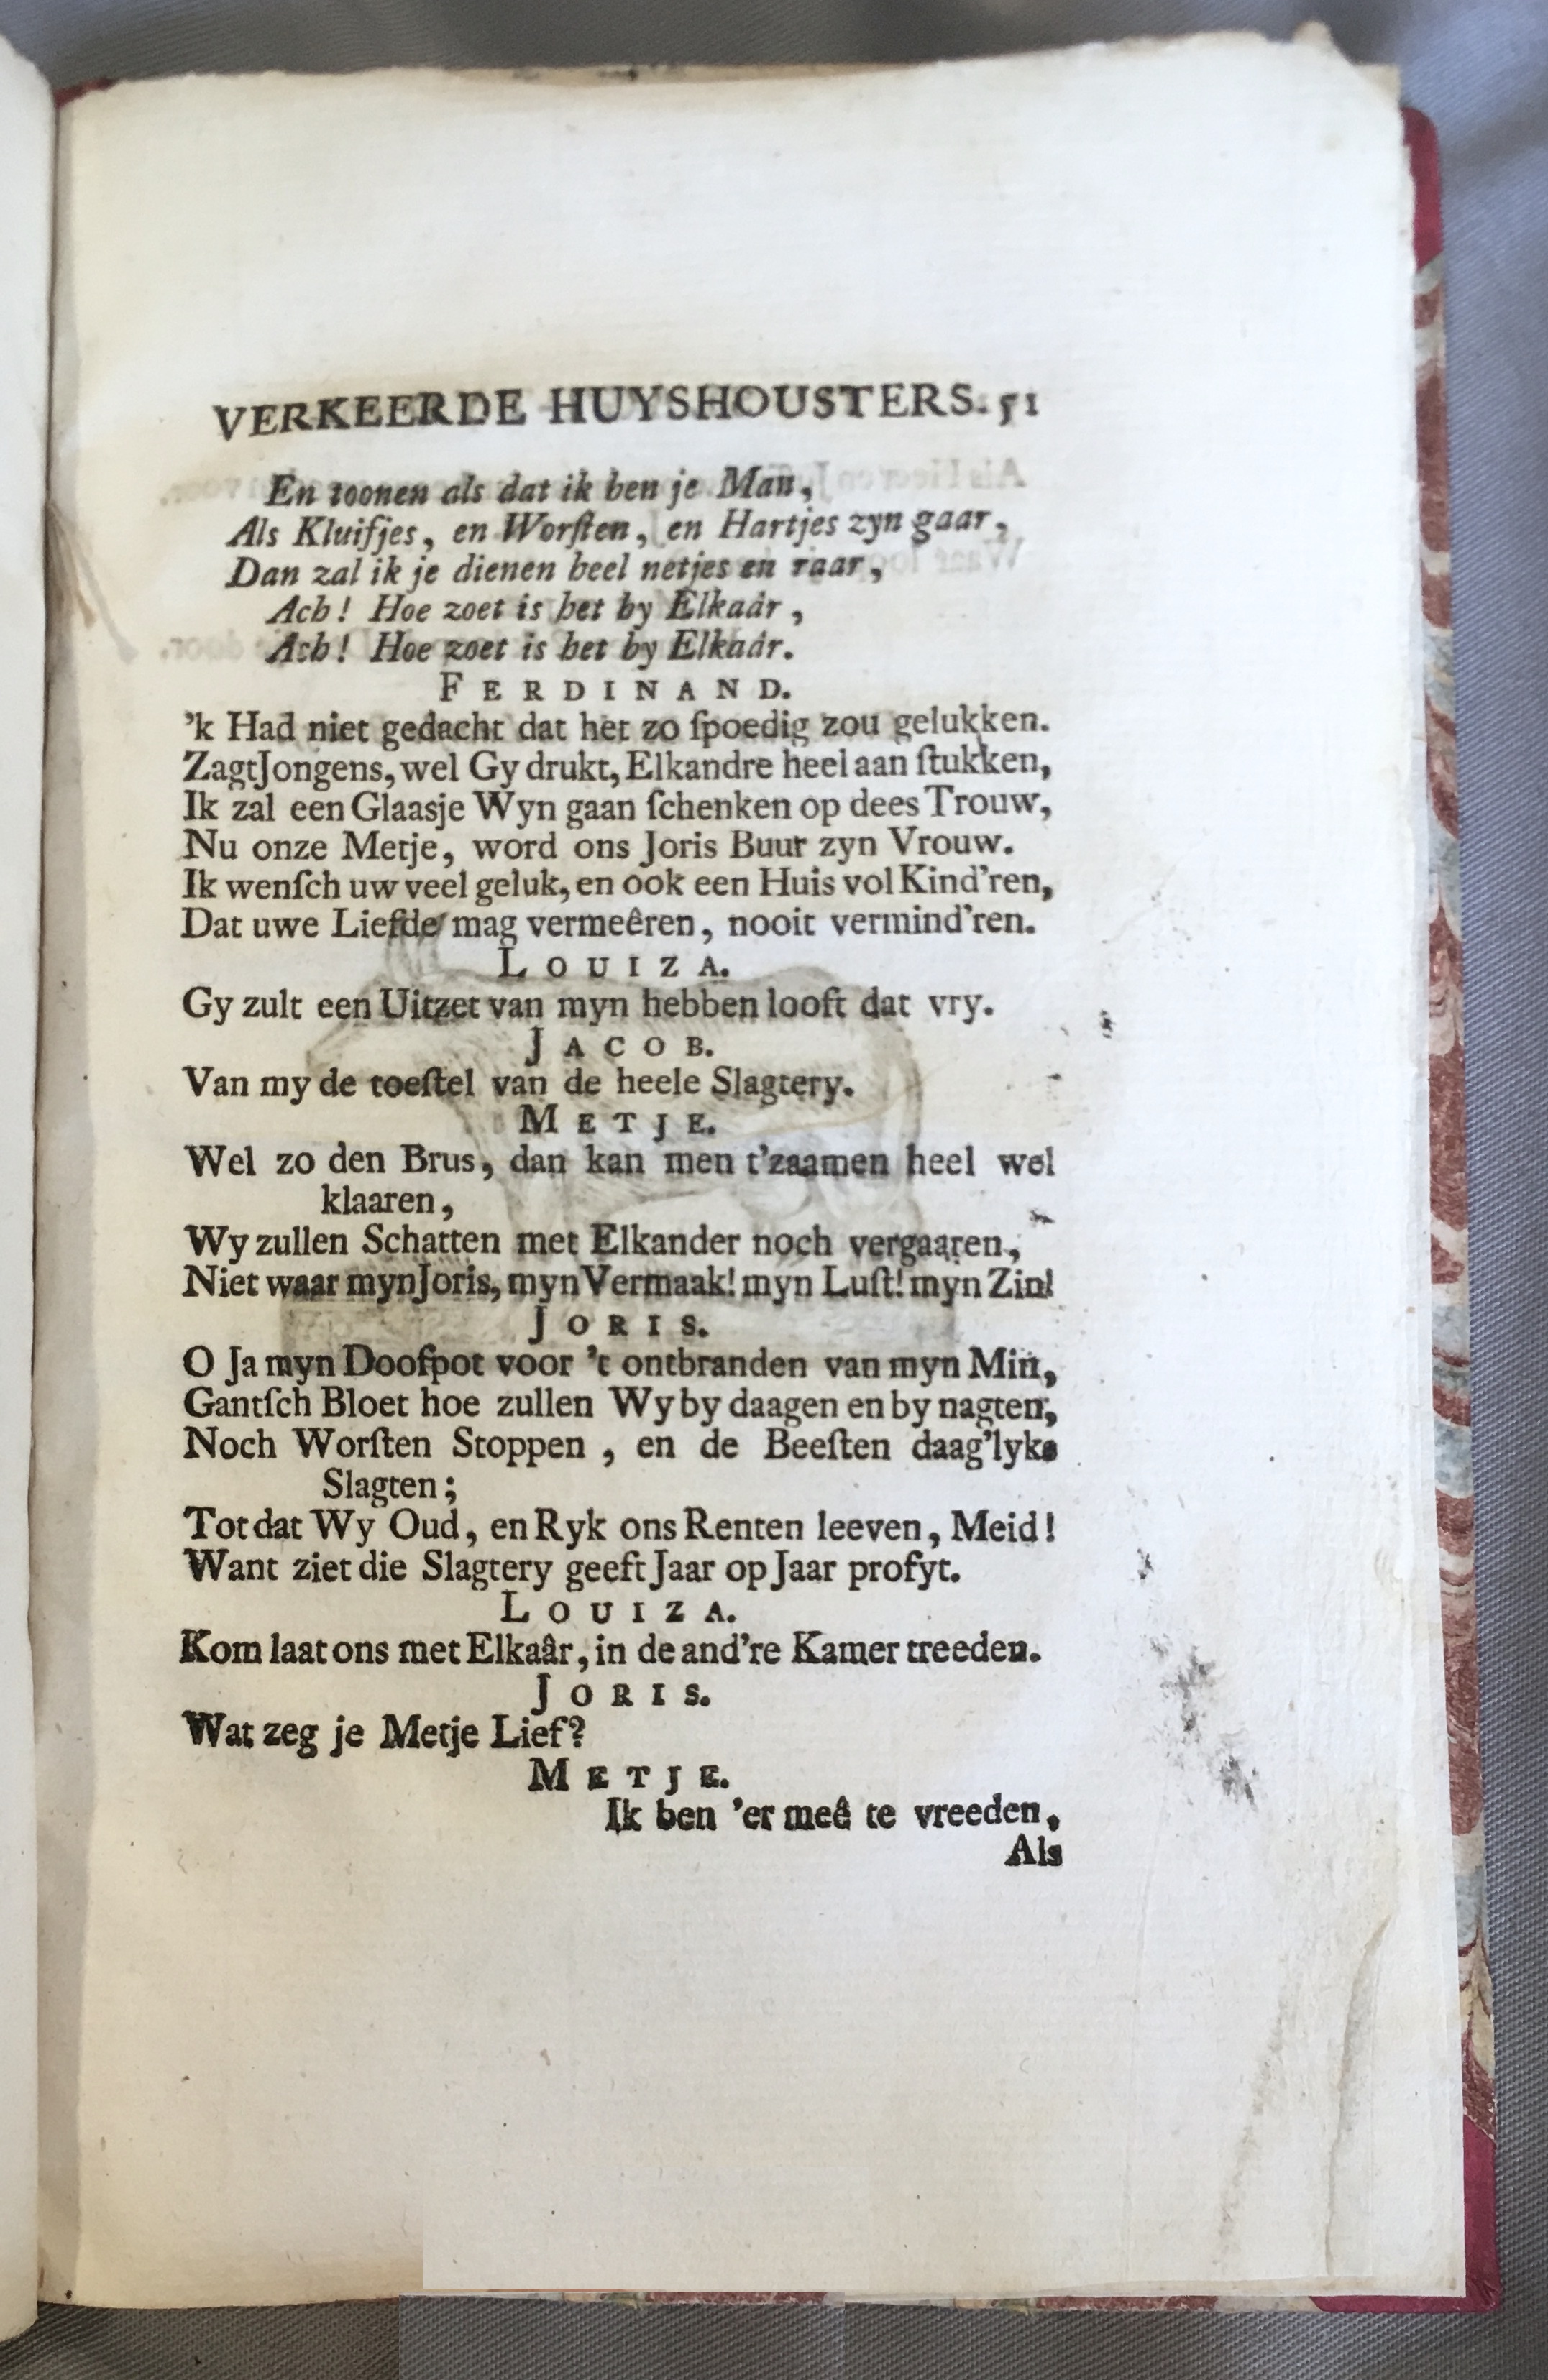 VERKEERDE HUYSHOUSTERS. 51
En toonen als dat ik ben je Man,
Als Kluifjes, en Worſten, en Hartjes zyn gaar,
Dan zal ik je dienen heel netjes en raar,
Ach! Hoe zoet is het by Elkaâr,
Ach! Hoe zoet is het by Elkaâr.
FERDINAND.
’k Had niet gedacht dat het zo ſpoedig zou gelukken.
Zagt Jongens, wel Gy drukt, Elkandre heel aan ſtukken,
Ik zal een Glaasje Wyn gaan ſchenken op dees Trouw,
Nu onze Metje, word ons Joris Buur zyn Vrouw.
Ik wenſch uw veel geluk, en ook een Huis vol Kind’ren,
Dat uwe Liefde mag vermeêren, nooit vermind’ren.
LOUIZA.
Gy zult een Uitzet van myn hebben looft dat vry.
JACOB.
Van my de toeſtel van de heele Slagtery.
METJE.
Wel zo den Brus, dan kan men t’zaamen heel wel
klaaren,
Wy zullen Schatten met Elkander noch vergaaren,
Niet waar myn Joris, myn Vermaak! myn Luſt! myn Zin!
JORIS.
O Ja myn Doofpot voor ’t ontbranden van myn Min,
Gantſch Bloet hoe zullen Wy by daagen en by nagten,
Noch Worſten Stoppen, en de Beeſten daag’lyks
Slagten;
Tot dat Wy Oud, en Ryk ons Renten leeven, Meid!
Want ziet die Slagtery geeft Jaar op Jaar profyt.
LOUIZA.
Kom laat ons met Elkaâr, in de and’re Kamer treeden.
JORIS.
Wat zeg je Metje Lief?
METJE.
Ik ben ’er meê te vreeden,
Als